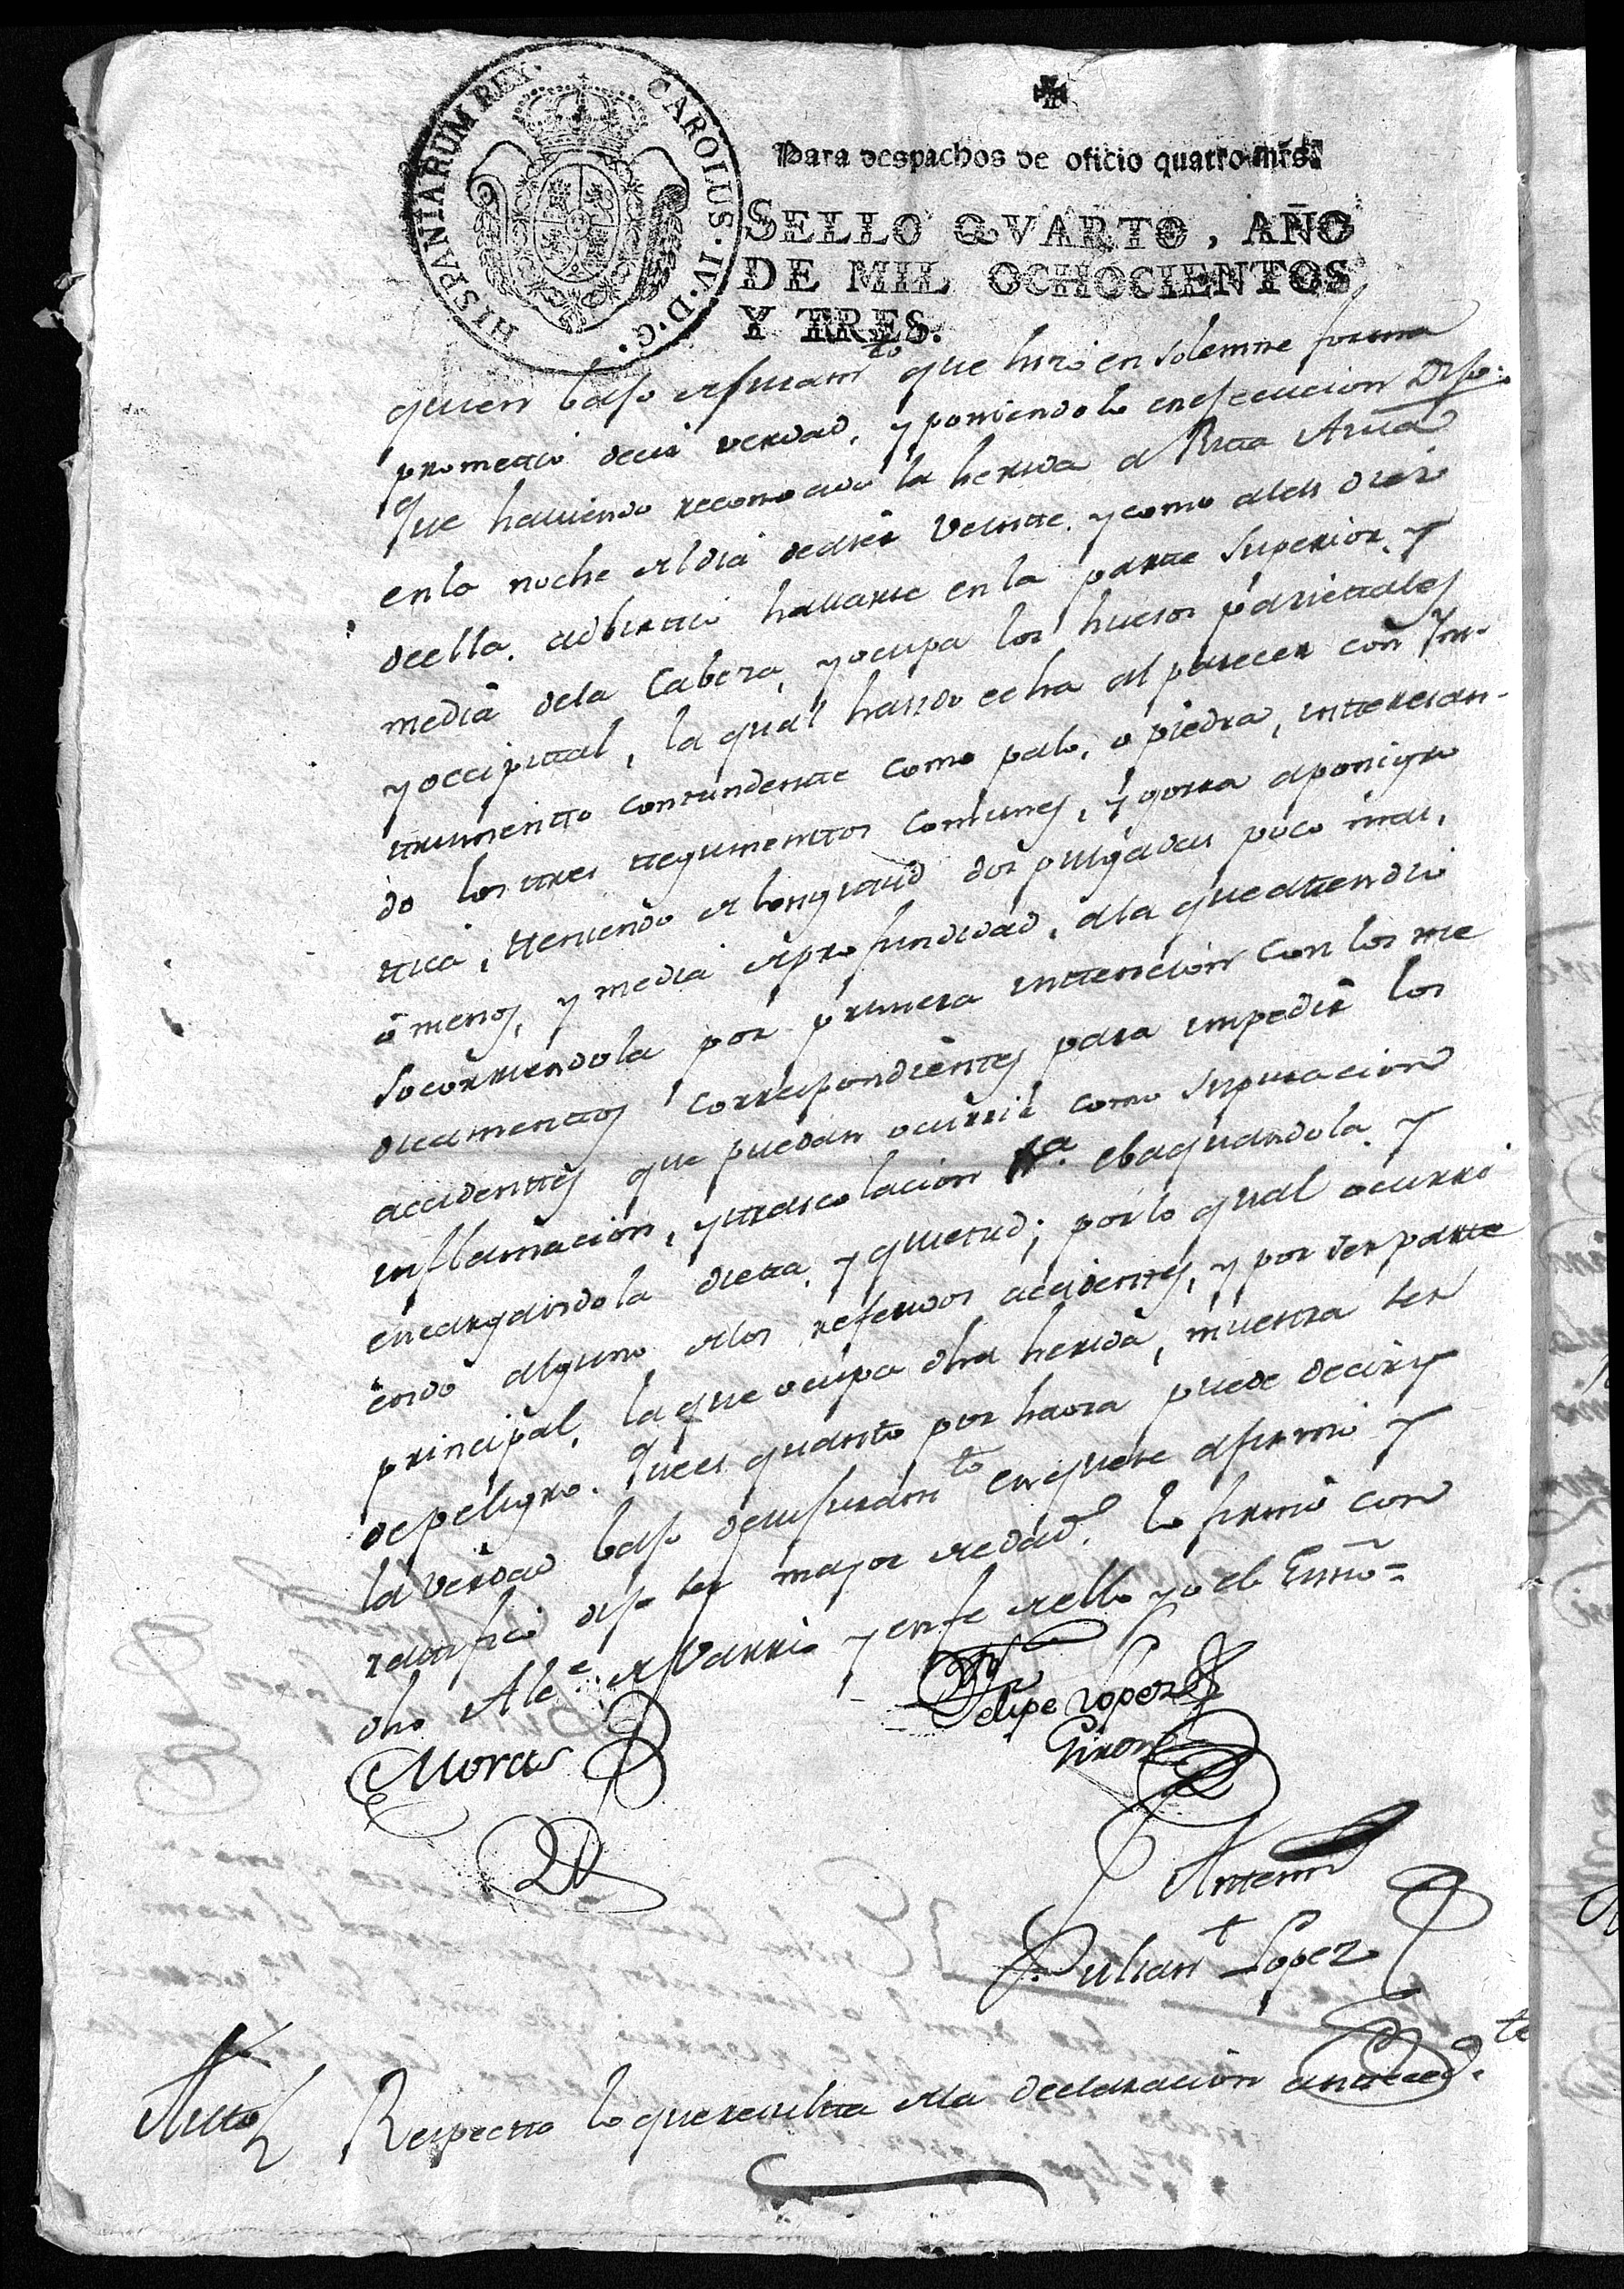 HISPANIARUM REX. CAROLUS · IV · D · G ·
Para despachos de oficio quatro mrs.
SELLO QVARTO, AÑO
DE MIL OCHOCIENTOS
Y TRES.
quien bajo el juramto que hizo en solemne forma
prometio decir verdad, y poniendolo en ejecucion Dijo:
Que haviendo reconocido la herida a Rita
en la noche el dia veinte y como a las diez
de ella, adbirtio hallarse en la parte superior, y
media dela Cabeza, y ocupa los huesos parietales
y occipital, la qual ha sido echa al parecer con Yns-
trumento contundente como palo, o piedra, interesan-
do los tres tegumentos comunes, y gorra aponigro
tica, teniendo de longitud dos pulgadas poco mas,
o menos, y media de profundidad, ala que atendio
socorriendola por primera intencion con los me
dicamentos correspondientes para impedir los
accidentes que puedan ocurrir como supuracion
inflamacion, y trascolacion ebaquandola y
encargandola dieta, y quietud; por lo qual ocurri
endo alguno de los referidos accidentes, y por ser parte
principal, la que ocupa dha herida, muestra ser
de peligro. Que es quanto por haora puede decir y
la verdad bajo de su juramto en que se afirmo y
ratifico dijo ser mayor de edad, lo firmo con
dho Alce de Varrio y en fe de ello yo el Essno=
Moras
Felipe Lopez
Giron
Antemi
Julian Lopez
Auto Respecto lo que resulta de la declaracion antecedte